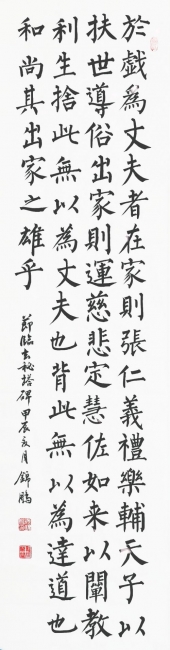 於戯為丈夫者在家則張仁義禮樂輔天子以
扶世導俗出家則運慈悲定慧佐如来以闡教
利生捨此無以為丈夫也背此無以為達道也
和尚其出家之雄乎
節臨玄秘塔碑甲辰夏月錦鵬